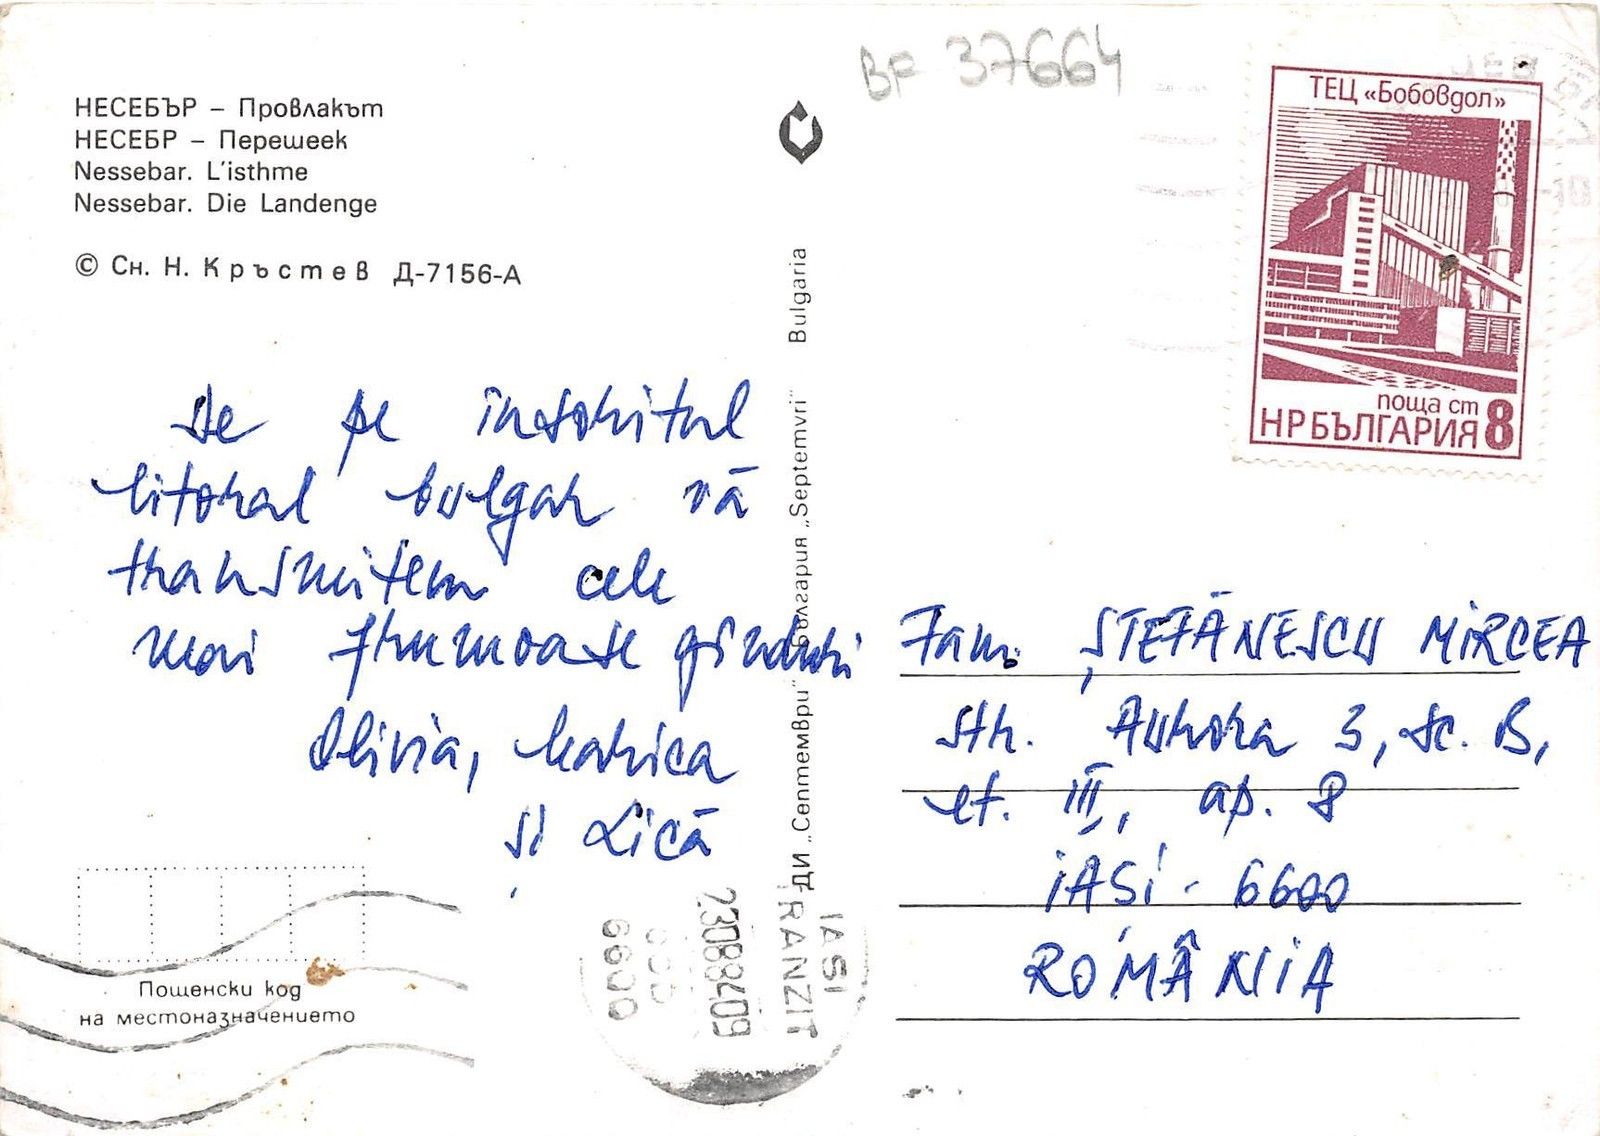 BF 37664
НЕСЕБЪР – Провлакът
НЕСЕБР – Перешеек
Nessebar. L'isthme
Nessebar. Die Landenge
© Сн. Н. Кръстев Д-7156-А
ТЕЦ «Бобовдол»
поща ст 8
НР БЪЛГАРИЯ
ДИ „Септември" България „Septemvri" Bulgaria
De pe însoritul
litoral bulgar vă
transmitem cele
mai frumoase gînduri
Olivia, Marica
și Lică
Fam. ȘTEFĂNESCU MIRCEA
str. Aurora 3, sc. B,
et. III, ap. 8
IAȘI - 6600
ROMÂNIA
Пощенски код
на местоназначението
IASI
TRANZIT
23088409
6600